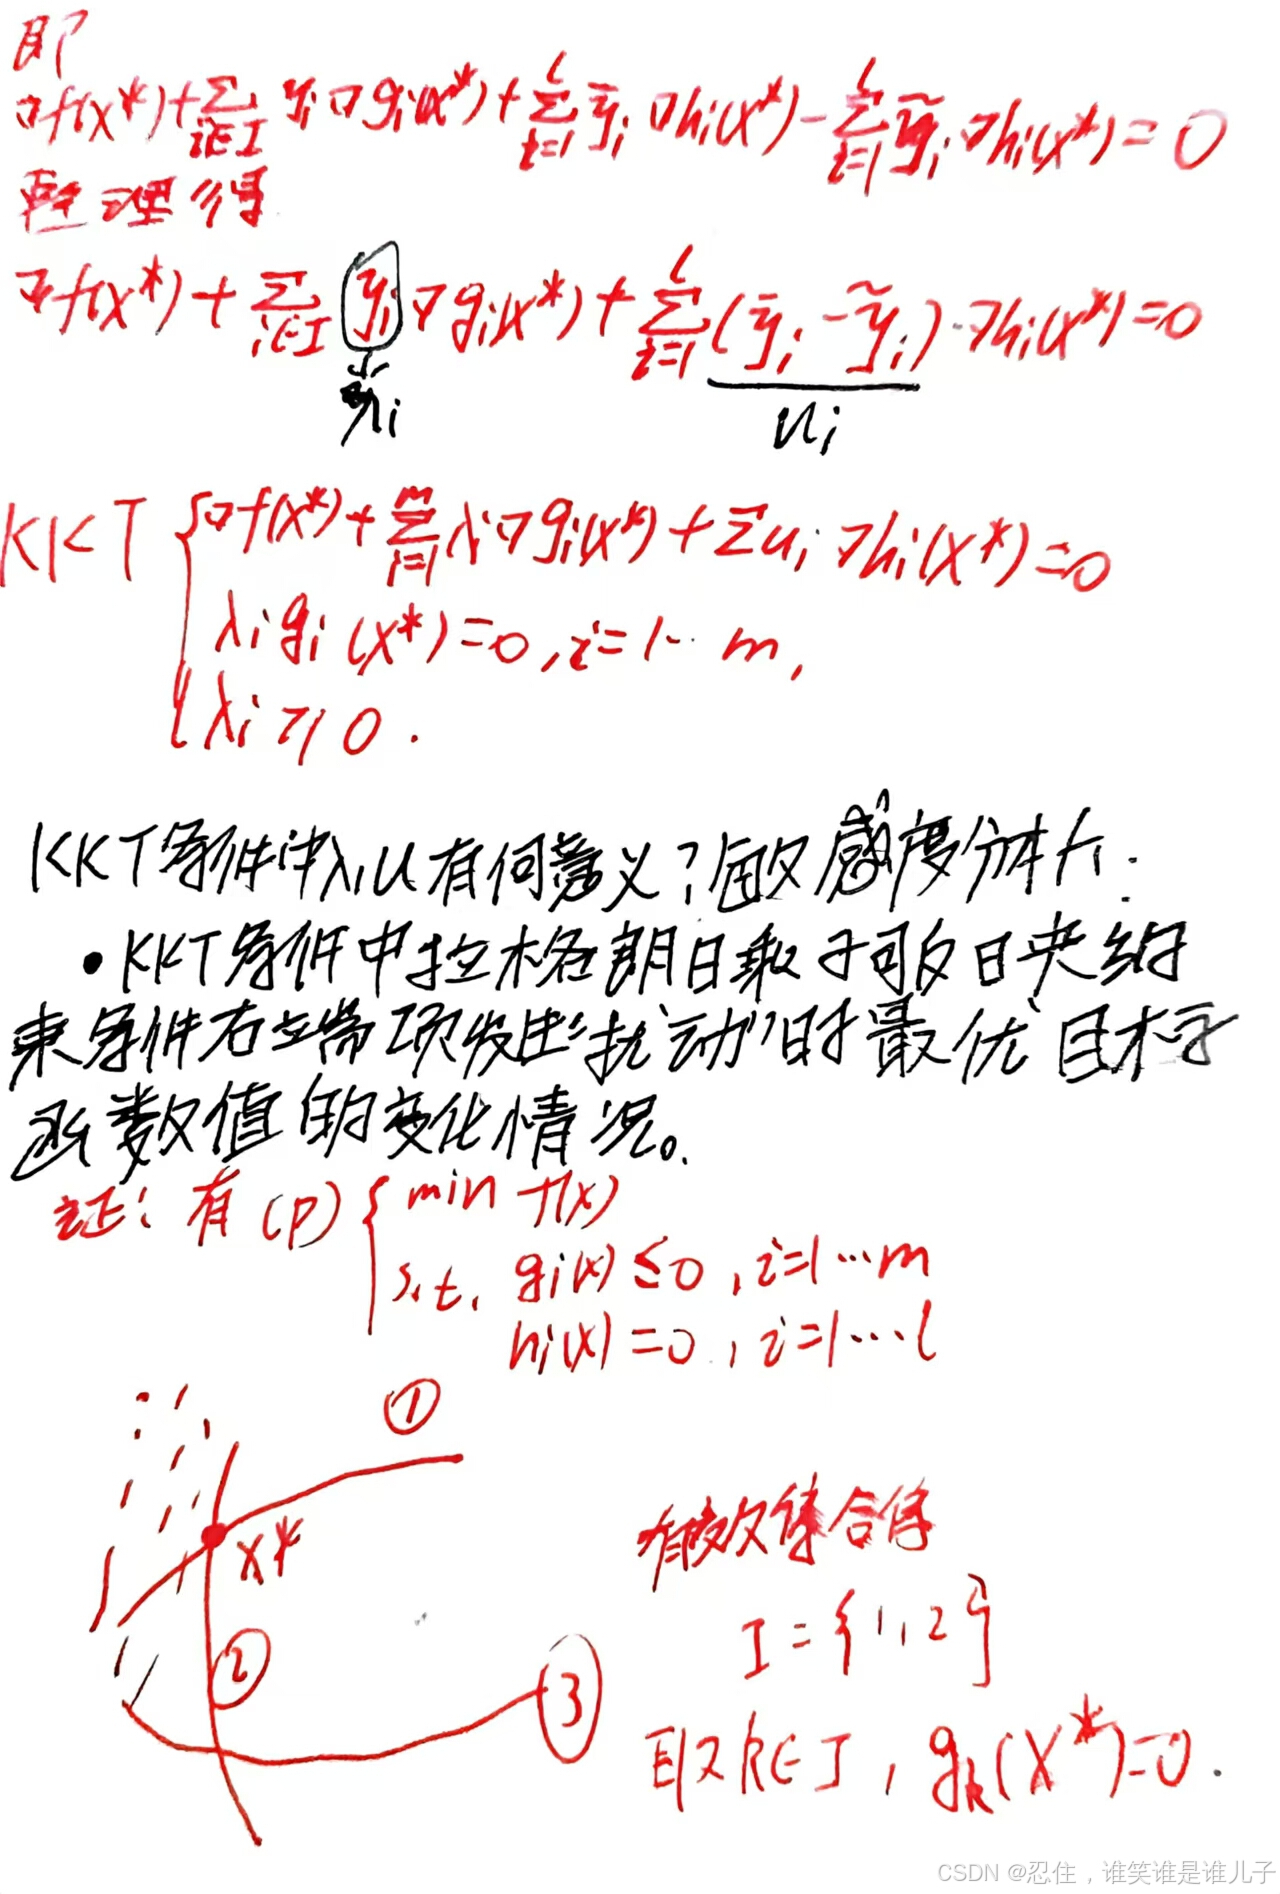 即
∇f(x*)+∑_{i∈I} y_i∇g_i(x*)+∑_{i=1}^{l} ȳ_i∇h_i(x*)-∑_{i=1}^{l} ỹ_i·∇h_i(x*)=0
整理得
∇f(x*)+∑_{i∈I} y_i∇g_i(x*)+∑_{i=1}^{l}(ȳ_i-ỹ_i)·∇h_i(x*)=0
λ_i u_i
KKT {∇f(x*)+∑_{i=1}^{m} λ_i∇g_i(x*)+∑u_i·∇h_i(x*)=0
λ_i g_i(x*)=0, i=1… m,
λ_i≥0.
KKT条件中λ,u有何意义?敏感度分析:
• KKT条件中拉格朗日乘子可反映约
束条件右端项发生扰动时最优目标
函数值的变化情况。
证: 有(P) {min f(x)
s.t. g_i(x)≤0, i=1…m
h_i(x)=0, i=1…l
①
x*
有效集合
I={1,2}
②
③
取k∈I, g_k(x*)=0.
CSDN @忍住，谁笑谁是谁儿子